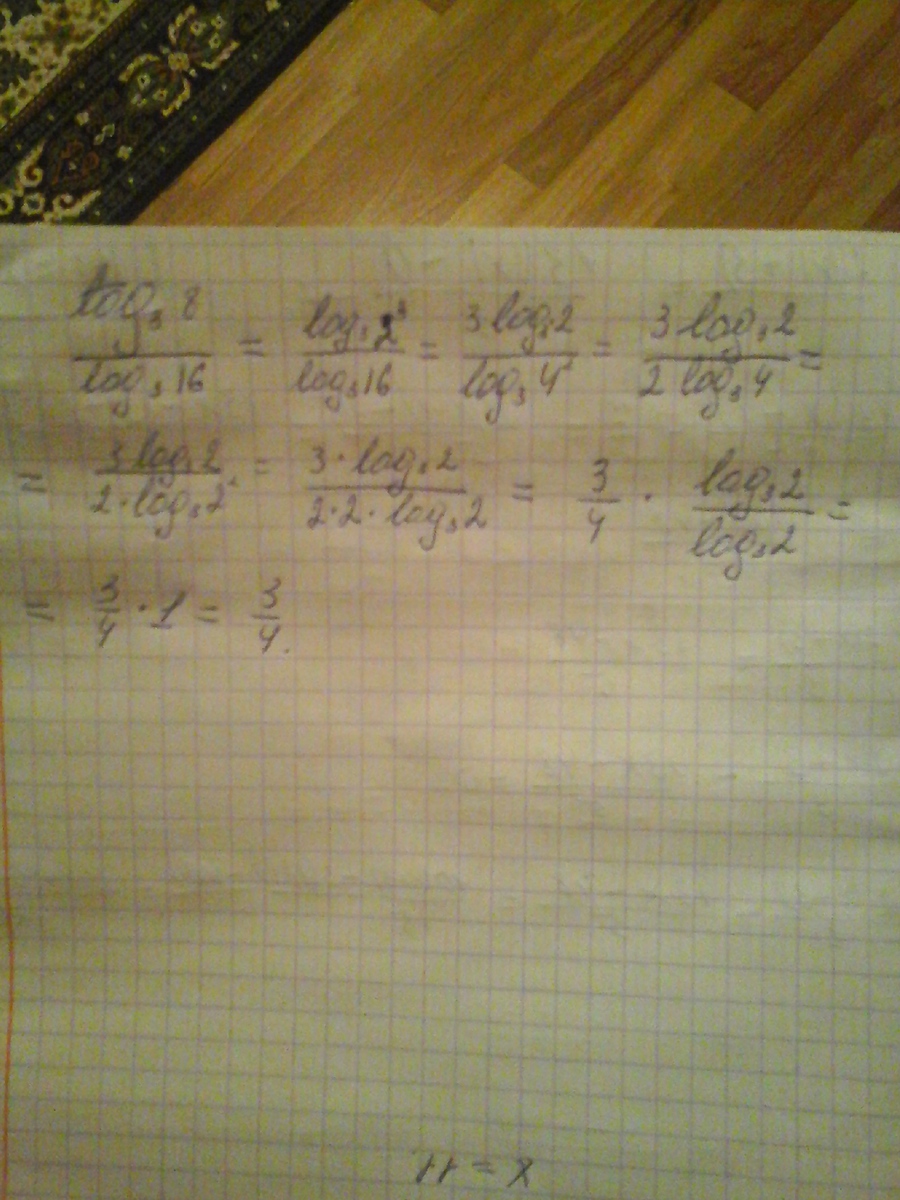 log₃ 8 / log₃ 16 = log₃ 2³ / log₃ 16 = 3 log₃ 2 / log₃ 4² = 3 log₃ 2 / 2 log₃ 4 =
= 3 log₃ 2 / 2 · log₃ 2² = 3 · log₃ 2 / 2 · 2 · log₃ 2 = 3/4 · log₃ 2 / log₃ 2 =
= 3/4 · 1 = 3/4.